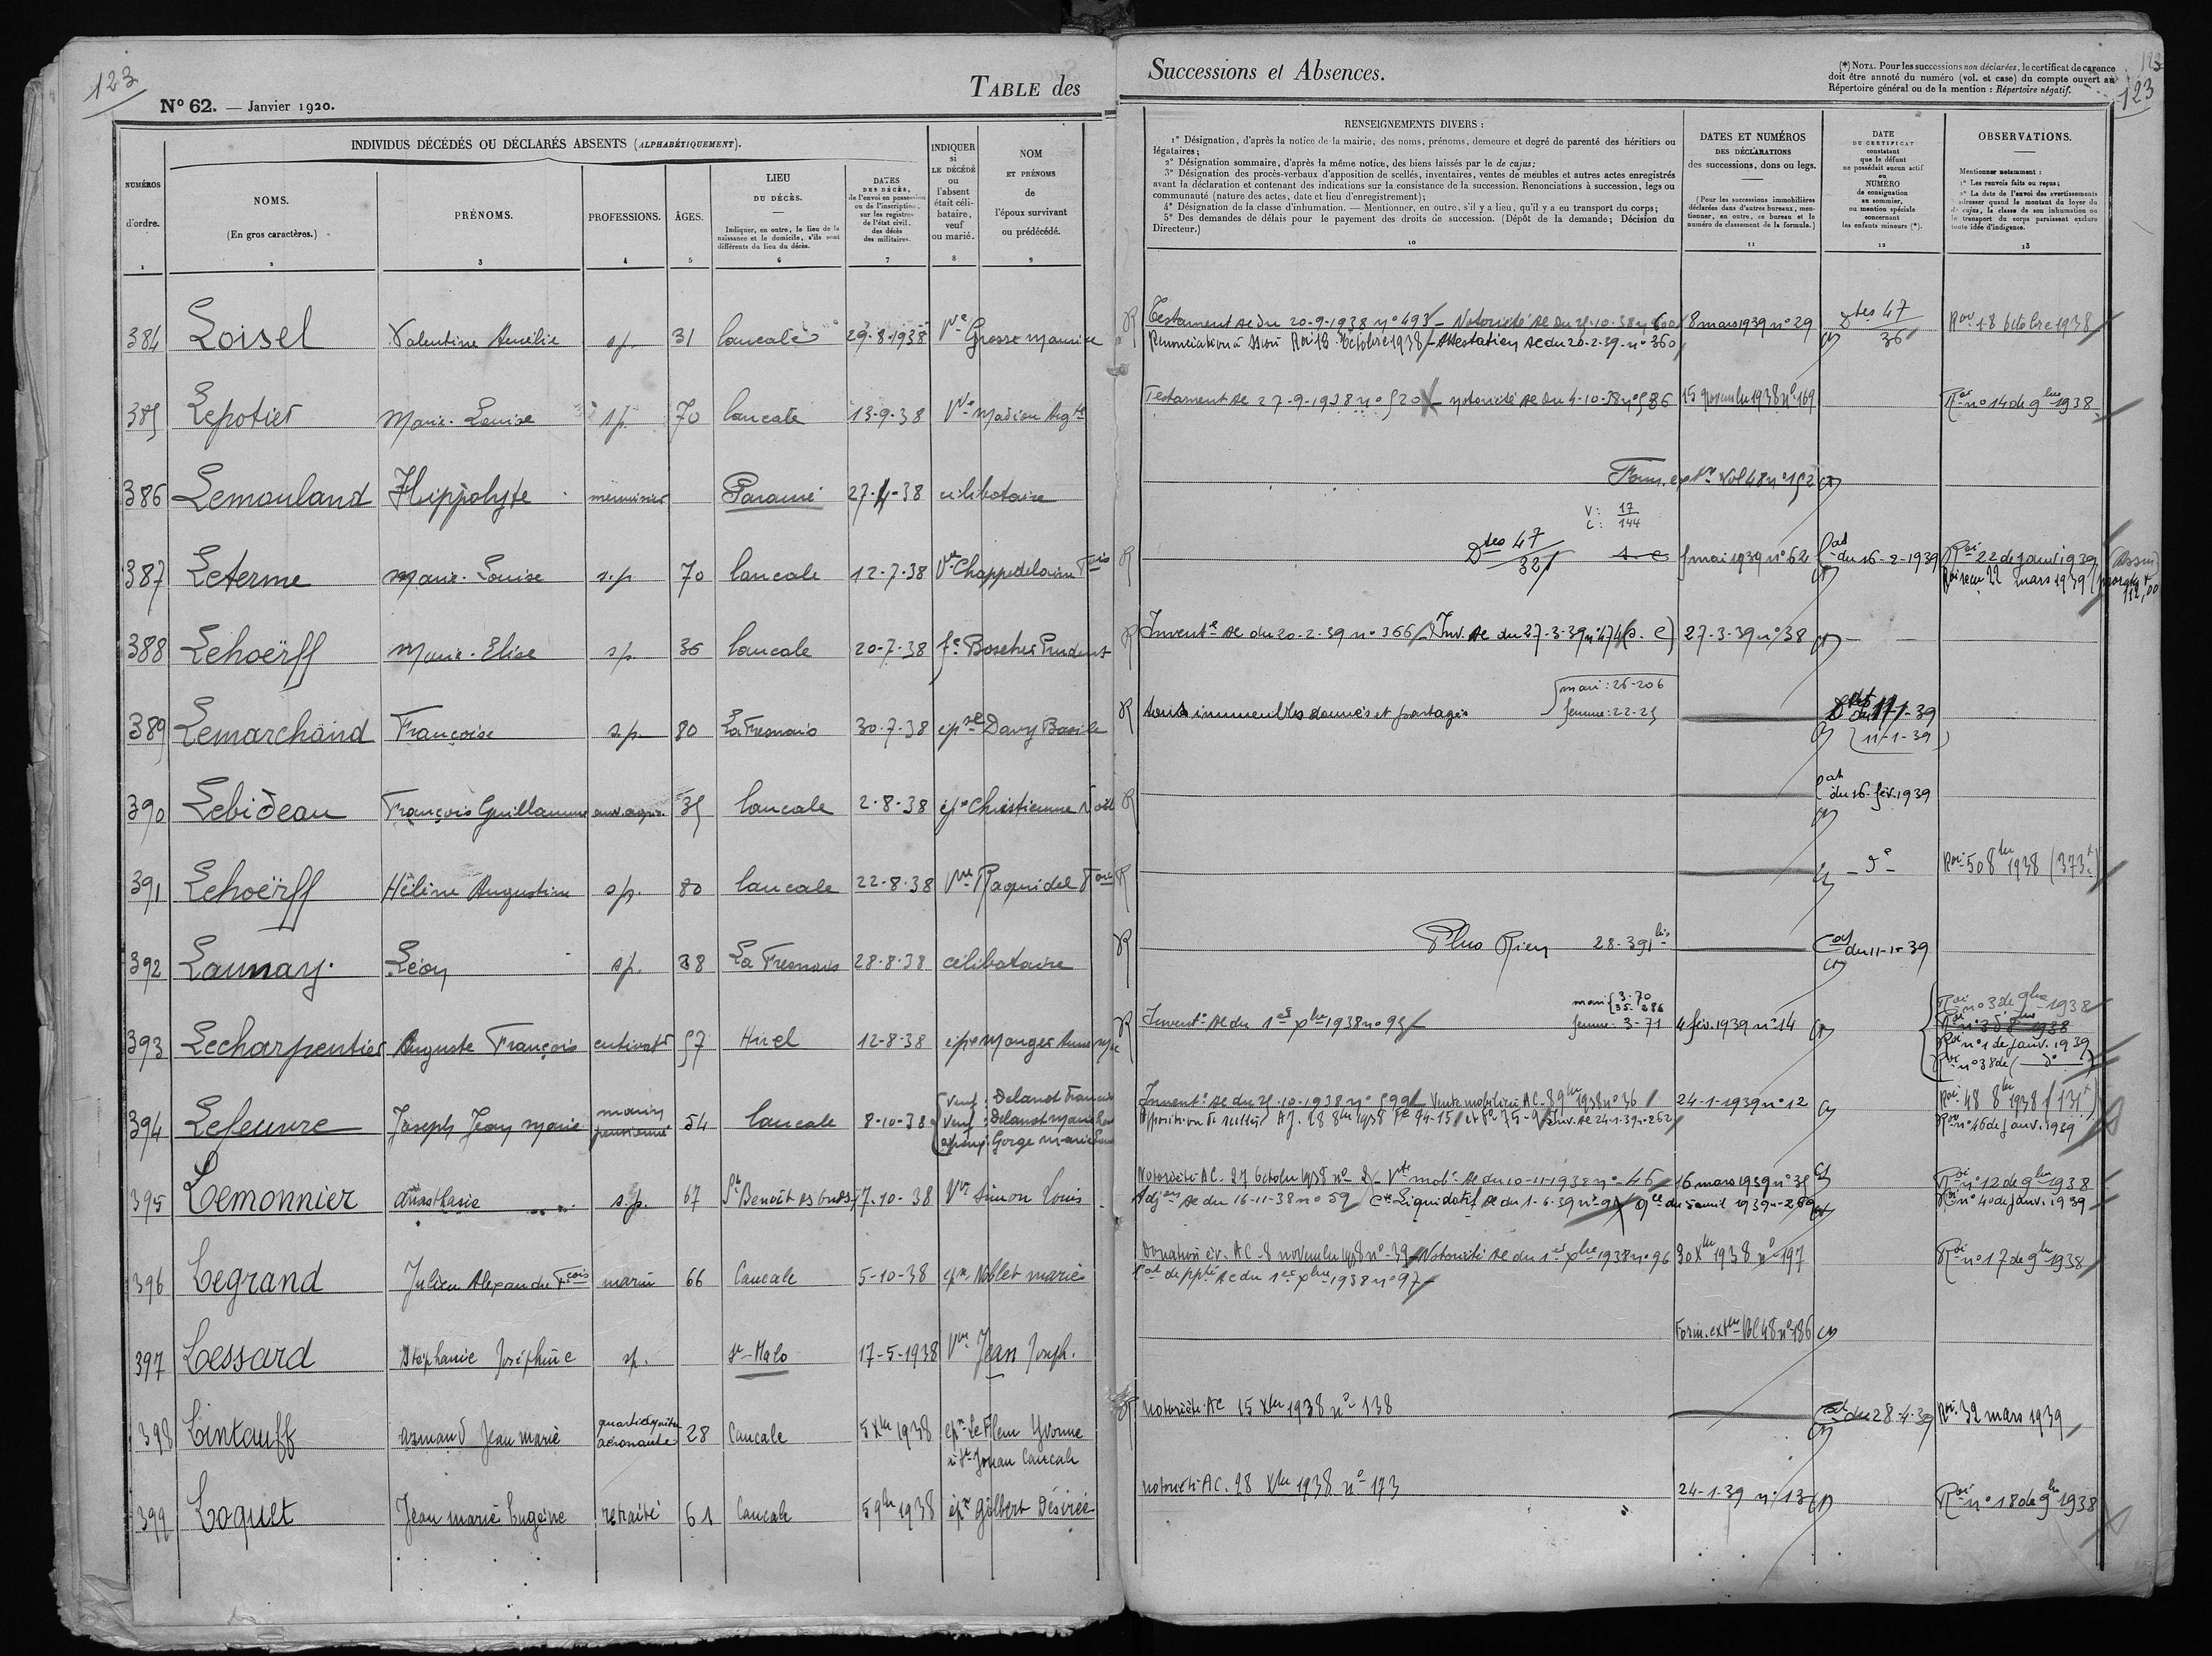 123
N° 62. — Janvier 1920.
TABLE des
Successions et Absences.
(*) NOTA. Pour les successions non déclarées, le certificat de carence
doit être annoté du numéro (vol. et case) du compte ouvert au
Répertoire général ou de la mention : Répertoire négatif.
123
INDIVIDUS DÉCÉDÉS OU DÉCLARÉS ABSENTS (ALPHABÉTIQUEMENT).
NUMÉROS
d'ordre.
1
NOMS.
(En gros caractères.)
2
PRÉNOMS.
3
PROFESSIONS.
4
ÂGES.
5
LIEU
DU DÉCÈS.
Indiquer, en outre, le lieu de la
naissance et le domicile, s'ils sont
différents du lieu du décès.
6
DATES
DES DÉCÈS,
de l'envoi en possession
ou de l'inscription,
sur les registres
de l'état civil,
des décès
des militaires.
7
INDIQUER
si
LE DÉCÉDÉ
ou
l'absent
était céli-
bataire,
veuf
ou marié.
8
NOM
ET PRÉNOMS
de
l'époux survivant
ou prédécédé.
9
RENSEIGNEMENTS DIVERS :
1° Désignation, d'après la notice de la mairie, des noms, prénoms, demeure et degré de parenté des héritiers ou
légataires;
2° Désignation sommaire, d'après la même notice, des biens laissés par le de cujus;
3° Désignation des procès-verbaux d'apposition de scellés, inventaires, ventes de meubles et autres actes enregistrés
avant la déclaration et contenant des indications sur la consistance de la succession. Renonciations à succession, legs ou
communauté (nature des actes, date et lieu d'enregistrement);
4° Désignation de la classe d'inhumation. — Mentionner, en outre, s'il y a lieu, qu'il y a eu transport du corps;
5° Des demandes de délais pour le payement des droits de succession. (Dépôt de la demande; Décision du
Directeur.)
10
DATES ET NUMÉROS
DES DÉCLARATIONS
des successions, dons ou legs.
(Pour les successions immobilières
déclarées dans d'autres bureaux, men-
tionner, en outre, ce bureau et le
numéro de classement de la formule.)
11
DATE
DU CERTIFICAT
constatant
que le défunt
ne possédait aucun actif
ou
NUMÉRO
de consignation
au sommier,
ou mention spéciale
concernant
les enfants mineurs (*).
12
OBSERVATIONS.
Mentionner notamment :
1° Les renvois faits ou reçus;
2° La date de l'envoi des avertissements
à adresser quand le montant du loyer du
de cujus, la classe de son inhumation ou
le transport du corps paraissent exclure
toute idée d'indigence.
13
384 Loisel Valentine Amélie s.p. 31 Cancale 29-8-1938 Vve Grosse Maurice R Testament Ac du 20-9-1938 n° 493 - Notoriété Ac du 25-10-38 n° 600 8 mars 1939 n° 29 Dtes 47 Roi 18 Octobre 1938
Renonciation à sson Roi 18 Octobre 1938 - Attestation Ac du 20-2-39 - n° 360 36
385 Lepotier Marie-Louise s.p. 70 Cancale 13-9-38 Vve Marion Augte Testament Ac 27-9-1938 n° 520 - notoriété Ac du 4-10-38 n° 586 15 novembre 1938 n° 169 Roi n° 14 de 9bre 1938
386 Lemouland Hippolyte menuisier Paramé 27-4-38 célibataire Form. extre Vol 48 n° 152
V : 17
C : 144
387 Leterme Marie-Louise s.p. 70 Cancale 12-7-38 Vve Chappedelaine Fois R Dtes 47 / 321 s-c 5 mai 1939 n° 62 Cat du 16-2-1939 Roi 22 de janvi 1939
Roi 22 mars 1939
112,00
388 Lehoërff Marie-Elise s.p. 36 Cancale 20-7-38 fe Boscher Prudent R Inventre Ac du 20-2-39 n° 366 / Inv. Ac du 27-3-39 n° 474 (s. c) 27-3-39 n° 38
389 Lemarchand Françoise s.p. 80 La Fresnais 30-7-38 épse Davy Basile R tous immeubles donnés et partagés
mari : 26-206
femme : 22-25
11-1-39
(11-1-39)
390 Lebideau François Guillaume 35 Cancale 2-8-38 épx Christienne Noël R Cat du 16 fév. 1939
391 Lehoërff Hélène Augustine s.p. 80 Cancale 22-8-38 Vve Raquidel Fois R - do - Roi 50 8bre 1938 (373)
392 Launay Léon s.p. 38 La Fresnais 28-8-38 célibataire R Plus Rien 28-391 bis Cat du 11-1-39
393 Lecharpentier Auguste François cultivatr 57 Hirel 12-8-38 épx Monger Anne Mie R Inventre Ac du 1er Xbre 1938 n° 95
mari 3-70
35-286
femme 3-71
4 fév. 1939 n° 14
Roi n° 3 de 9bre 1938
Roi n° 1 de janv. 1939
Roi n° 38 de ( do )
394 Lefeuvre Joseph Jean Marie marin
pensionné 54 Cancale 8-10-38 veuf : Delanot
veuf : Delanot
époux : Gorge Marie
Inventre Ac du 25-10-1938 n° 599 Vente mobilière AC. 8 9bre 1938 n° 36 24-1-1939 n° 12 Roi 48 8bre 1938 (131)
Apposition de scellés AJ. 28 8bre 1938 / Inv. Ac 24-1-39 n° 262 Roi n° 46 de janv. 1939
395 Lemonnier Anasthasie s.p. 67 St Benoît des Ondes 7-10-38 Vve Simon Louis Notoriété AC. 27 Octobre 1938 n° - Vte mobre Ac du 10-11-1938 n° 46 16 mars 1939 n° 35 Roi n° 12 de 9bre 1938
Adjon Ac du 16-11-38 n° 59 / Cte Liquidatif Ac du 1-6-39 du 5 avril 1939 n° 269 Roi n° 40 de janv. 1939
396 Legrand Julien Alexandre Fçois marin 66 Cancale 5-10-38 épx Noblet Marie Donation év. AC. 8 novembre 1938 n° 39 - Notoriété Ac du 1er Xbre 1938 n° 96 30 Xbre 1938 n° 197 Roi n° 17 de 9bre 1938
Cat de ppté Ac du 1er Xbre 1938 n° 97
397 Lessard Stéphanie Joséphine s.p. St-Malo 17-5-1938 Vve Jean Joseph. Form. extre Vol 48 n° 186
398 Lintauff Armand Jean Marie quartier maître
aéronaute 28 Cancale 5 Xbre 1938 épx Le Flem Yvonne
à St-Jouan Cancale
R Notoriété AC 15 Xbre 1938 n° 138 Cat du 28-4-39 Roi 32 mars 1939
399 Loquet Jean Marie Eugène retraité 61 Cancale 5 9bre 1938 épx Gilbert Désirée Notoriété AC. 28 Xbre 1938 n° 173 24-1-39 n° 13 Roi n° 18 de 9bre 1938